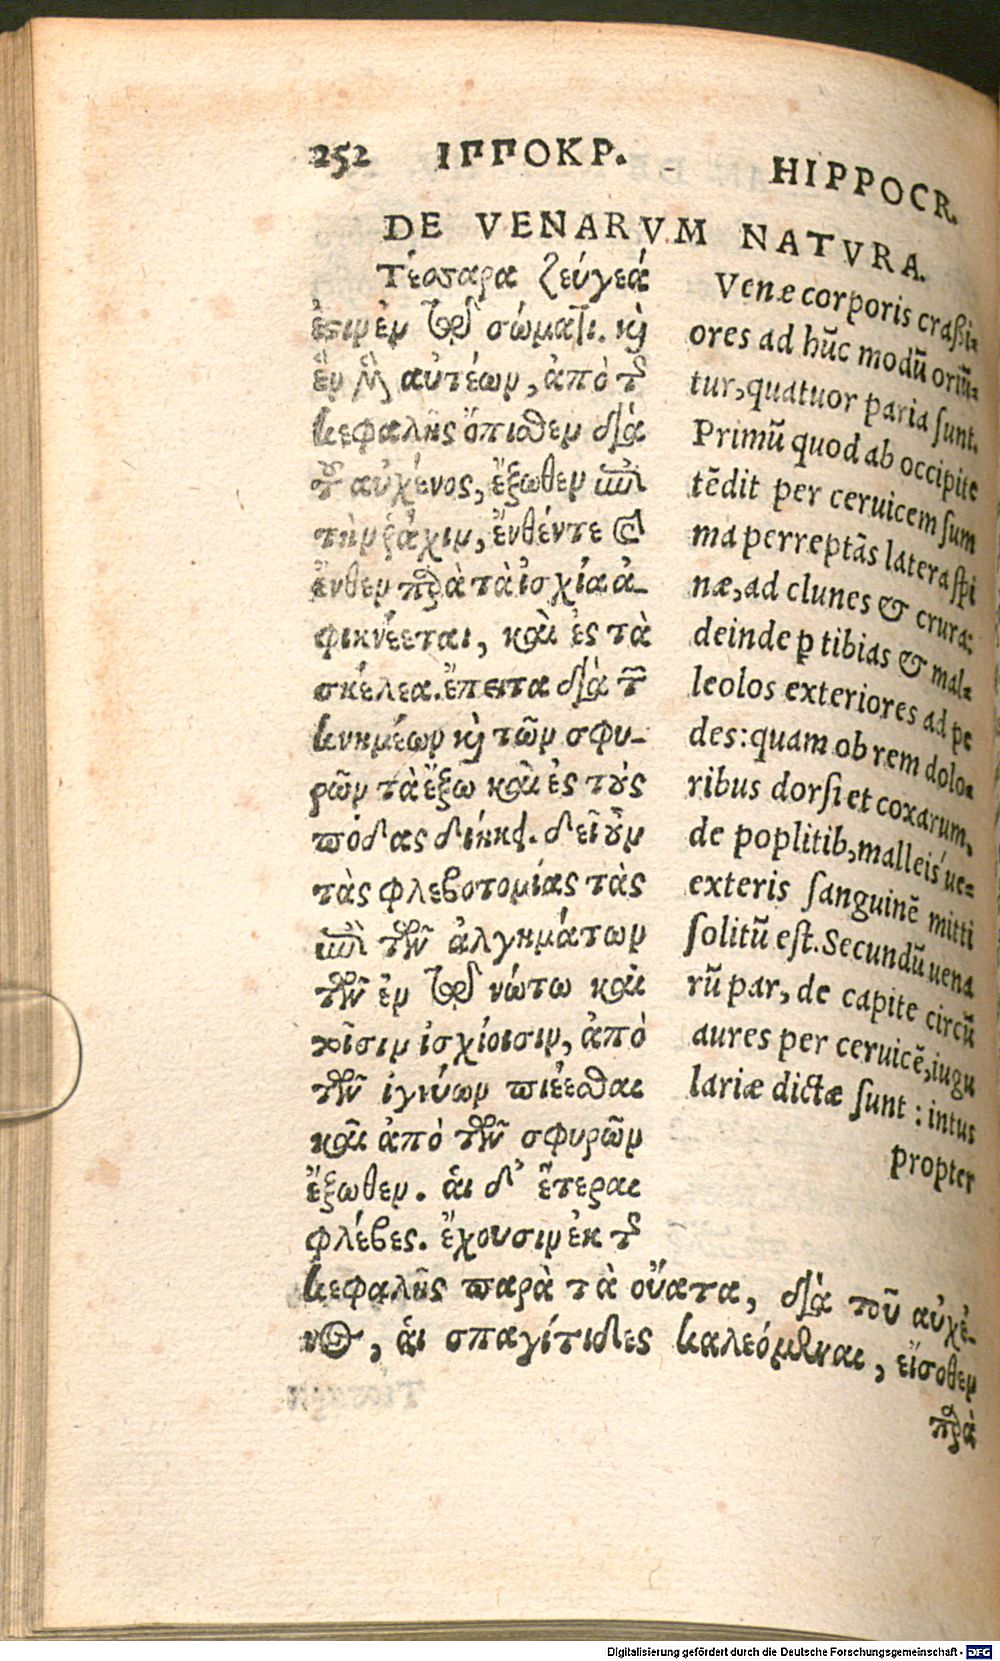 252 ΙΠΠΟΚΡ. HIPPOCR.
DE VENARVM NATVRA.
Τέσσαρα ζεύγεά
ἐστιν ἐν τῷ σώματι. καὶ
ἓν μὲν αὐτέων, ἀπὸ τῆς
κεφαλῆς ὄπισθεν διὰ
τοῦ αὐχένος, ἔξωθεν ἐπὶ
τὴν ῥάχιν, ἔνθέντε καὶ
ἔνθεν παρὰ τὰ ἰσχία ἀ-
φικνέεται, καὶ ἐς τὰ
σκέλεα. ἔπειτα διὰ τῶν
κνημέων καὶ τῶν σφυ-
ρῶν τὰ ἔξω καὶ ἐς τοὺς
πόδας διήκει. δεῖ οὖν
τὰς φλεβοτομίας τὰς
ἐπὶ τῶν ἀλγημάτων
τῶν ἐν τῷ νώτω καὶ
τοῖσιν ἰσχίοισιν, ἀπὸ
τῶν ἰγνύων πιέεσθαι
καὶ ἀπὸ τῶν σφυρῶν
ἔξωθεν. αἱ δ' ἕτεραι
φλέβες. ἔχουσιν ἐκ τῆς
κεφαλῆς παρὰ τὰ οὔατα, διὰ τοῦ αὐχέ-
νος, αἱ σπαγίτιδες καλεόμεναι, εἴσοθεν
παρὰ
Venæ corporis craßi-
ores ad hũc modũ oriũ-
tur, quatuor paria ſunt.
Primũ quod ab occipite
tẽdit per ceruicem ſum
ma perreptãs latera ſpi
næ, ad clunes & crura:
deinde ꝑ tibias & mal-
leolos exteriores ad pe
des: quam ob rem dolo-
ribus dorſi et coxarum,
de poplitib, malleiś ue-
exteris ſanguinẽ mitti
ſolitũ eſt. Secundũ uena
rũ par, de capite circũ
aures per ceruicẽ, iugu
lariæ dictæ ſunt: intus
propter
Digitalisierung gefördert durch die Deutsche Forschungsgemeinschaft - DFG